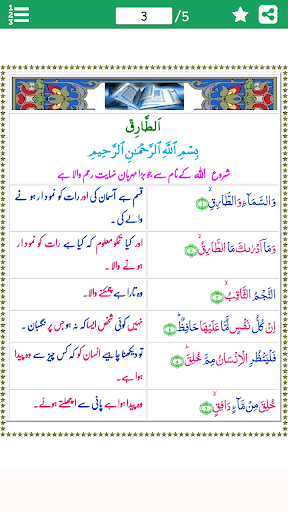 3 /5
اَلطَّارِقِ
بِسْمِ ٱللَّهِ ٱلرَّحْمَٰنِ ٱلرَّحِيمِ
شروع اللہ کےنام سے جو بڑا مہربان نہایت رحم والا ہے
وَالسَّمَآءِ وَالطَّارِقِۙ ﴿۱﴾
قسم ہے آسمان کی اور رات کو نمودار ہونے
والے کی ۔
وَمَآ اَدْرٰىكَ مَا الطَّارِقُۙ ﴿۲﴾
اور کیا تجکو معلوم کہ کیا ہے رات کو نمودار
ہونے والا ۔
النَّجْمُ الثَّاقِبُۙ ﴿۳﴾
وہ تارا ہے چمکنے والا ۔
اِنْ كُلُّ نَفْسٍ لَّمَّا عَلَيْهَا حَافِظٌؕ ﴿۴﴾
نہیں کوئی شخص ایسا کہ نہ ہو جس پر نگہبان ۔
فَلْيَنْظُرِ الْاِنْسَانُ مِمَّ خُلِقَؕ ﴿۵﴾
تو دیکھنا چاہیے انسان کو کہ کس چیز سے وہ پیدا
ہوا ہے ۔
خُلِقَ مِنْ مَّآءٍ دَافِقٍۙ ﴿۶﴾
وہ پیدا ہوا ہے پانی سے اچھلتے ہوئے ۔